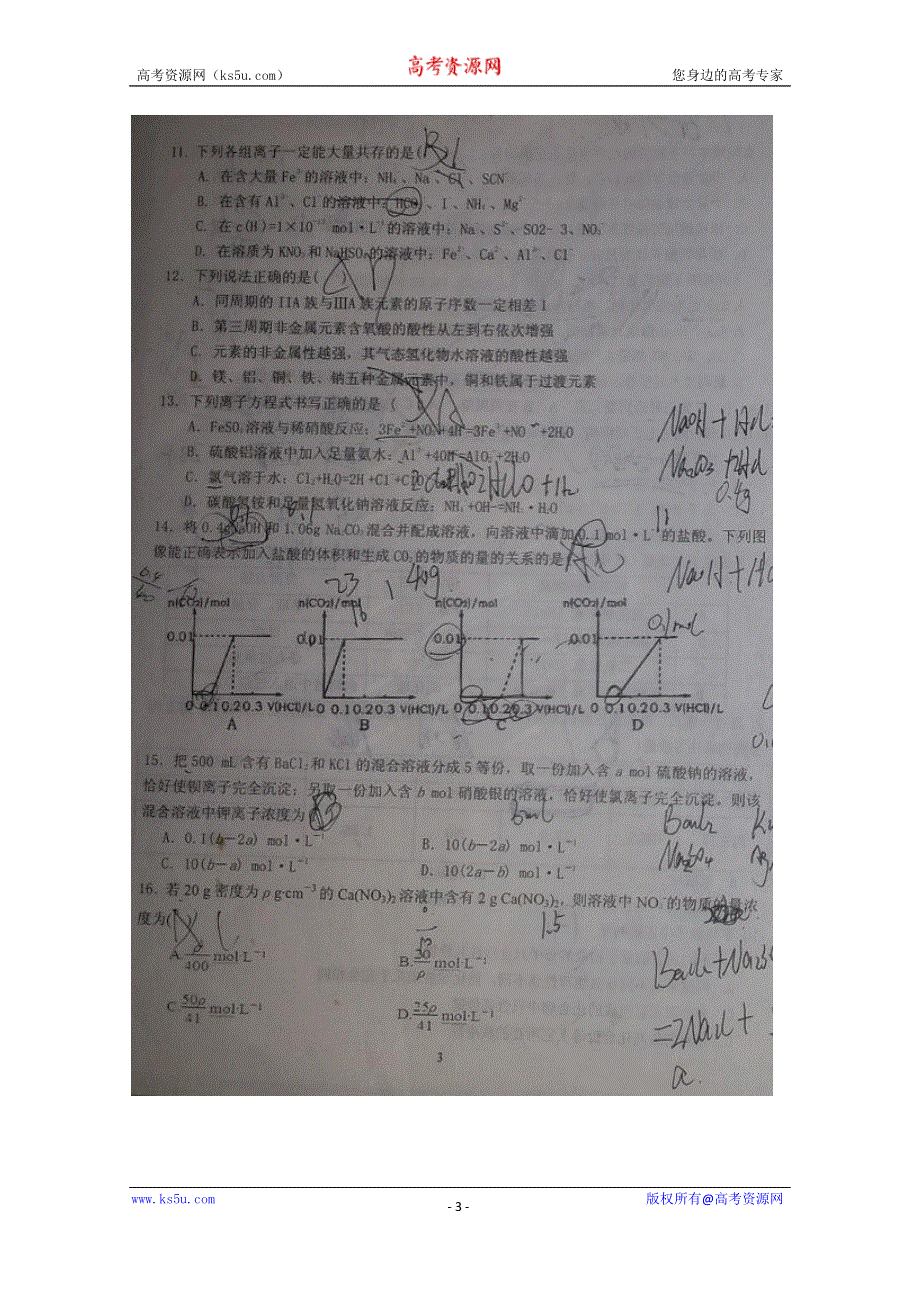 高考资源网（ks5u.com）
高考资源网
您身边的高考专家
11. 下列各组离子一定能大量共存的是( )
A. 在含大量Fe³的溶液中：NH₄、Na、Cl、SCN
B. 在含有Al³、Cl的溶液中：HCO₃、I、NH₄、Mg²
C. 在c(H)=1×10 mol·L⁻¹的溶液中：Na、S²、SO2- 3、NO₃
D. 在溶质为KNO₃和NaHSO₄的溶液中：Fe²、Ca²、Al³、Cl
12. 下列说法正确的是( )
A. 同周期的IIA族与ⅢA族元素的原子序数一定相差1
B. 第三周期非金属元素含氧酸的酸性从左到右依次增强
C. 元素的非金属性越强，其气态氢化物水溶液的酸性越强
D. 镁、铝、铜、铁、钠五种金属元素中，铜和铁属于过渡元素
13. 下列离子方程式书写正确的是 ( )
A. FeSO₄溶液与稀硝酸反应：3Fe²+NO₃+4H=3Fe³+NO +2H2O
B. 硫酸铝溶液中加入足量氨水：Al³+4OH=AlO₂+2H2O
C. 氯气溶于水：Cl₂+H₂O=2H+Cl+ClO
D. 碳酸氢铵和足量氢氧化钠溶液反应：NH₄+OH-=NH₃·H₂O
NaOH + HCl
Na2CO3 + 2HCl
0.4g
14. 将0.4gNaOH和1.06g Na₂CO₃混合并配成溶液，向溶液中滴加0.1 mol·L⁻¹的盐酸。下列图
像能正确表示加入盐酸的体积和生成CO₂的物质的量的关系的是(
NaOH + HC
23
16
1
40g
n(CO₂)/mol n(CO₂)/mol n(CO₂)/mol n(CO₂)/mol
0.1mol
0.01 0.01 0.01 0.01
0 0.1 0.2 0.3 V(HCl)/L 0 0.1 0.2 0.3 V(HCl)/L 0 0.1 0.2 0.3 V(HCl)/L 0 0.1 0.2 0.3 V(HCl)/L
A B C D
15. 把500 mL含有BaCl₂和KCl的混合溶液分成5等份，取一份加入含a mol硫酸钠的溶液，
恰好使钡离子完全沉淀；另取一份加入含b mol硝酸银的溶液，恰好使氯离子完全沉淀。则该
混合溶液中钾离子浓度为
BaCl2
A. 0.1(b-2a) mol·L⁻¹ B. 10(b-2a) mol·L⁻¹
C. 10(b-a) mol·L⁻¹ D. 10(2a-b) mol·L⁻¹
16. 若20 g密度为ρ g·cm⁻³的Ca(NO₃)₂溶液中含有2 g Ca(NO₃)₂，则溶液中NO₃⁻的物质的量浓
度为( )
1.5
A. ρ/400 mol·L⁻¹ B. mol·L⁻¹
C. 50ρ/41 mol·L⁻¹ D. 25ρ/41 mol·L⁻¹
=2NaCl +
a.
3
www.ks5u.com
- 3 -
版权所有@高考资源网